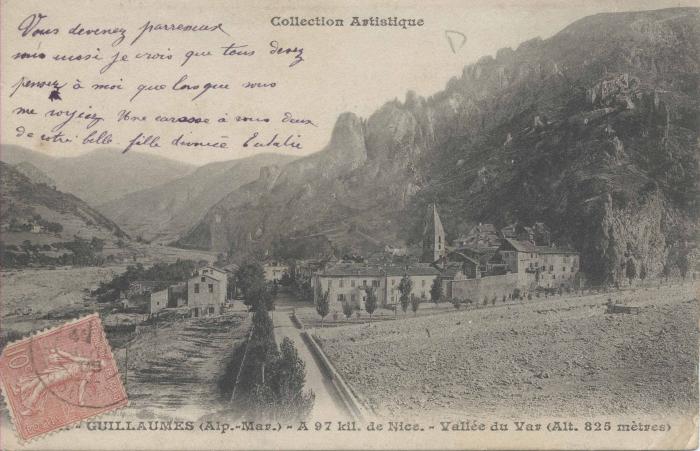 Collection Artistique
Vous devenez parresseux
vous aussi je crois que vous devez
pensez à moi que lorsque vous
me voyiez. Une caresse à vous deux
de votre belle fille Eulalie
10
GUILLAUMES (Alp.-Mar.) - A 97 kil. de Nice. - Vallée du Var (Alt. 825 mètres)